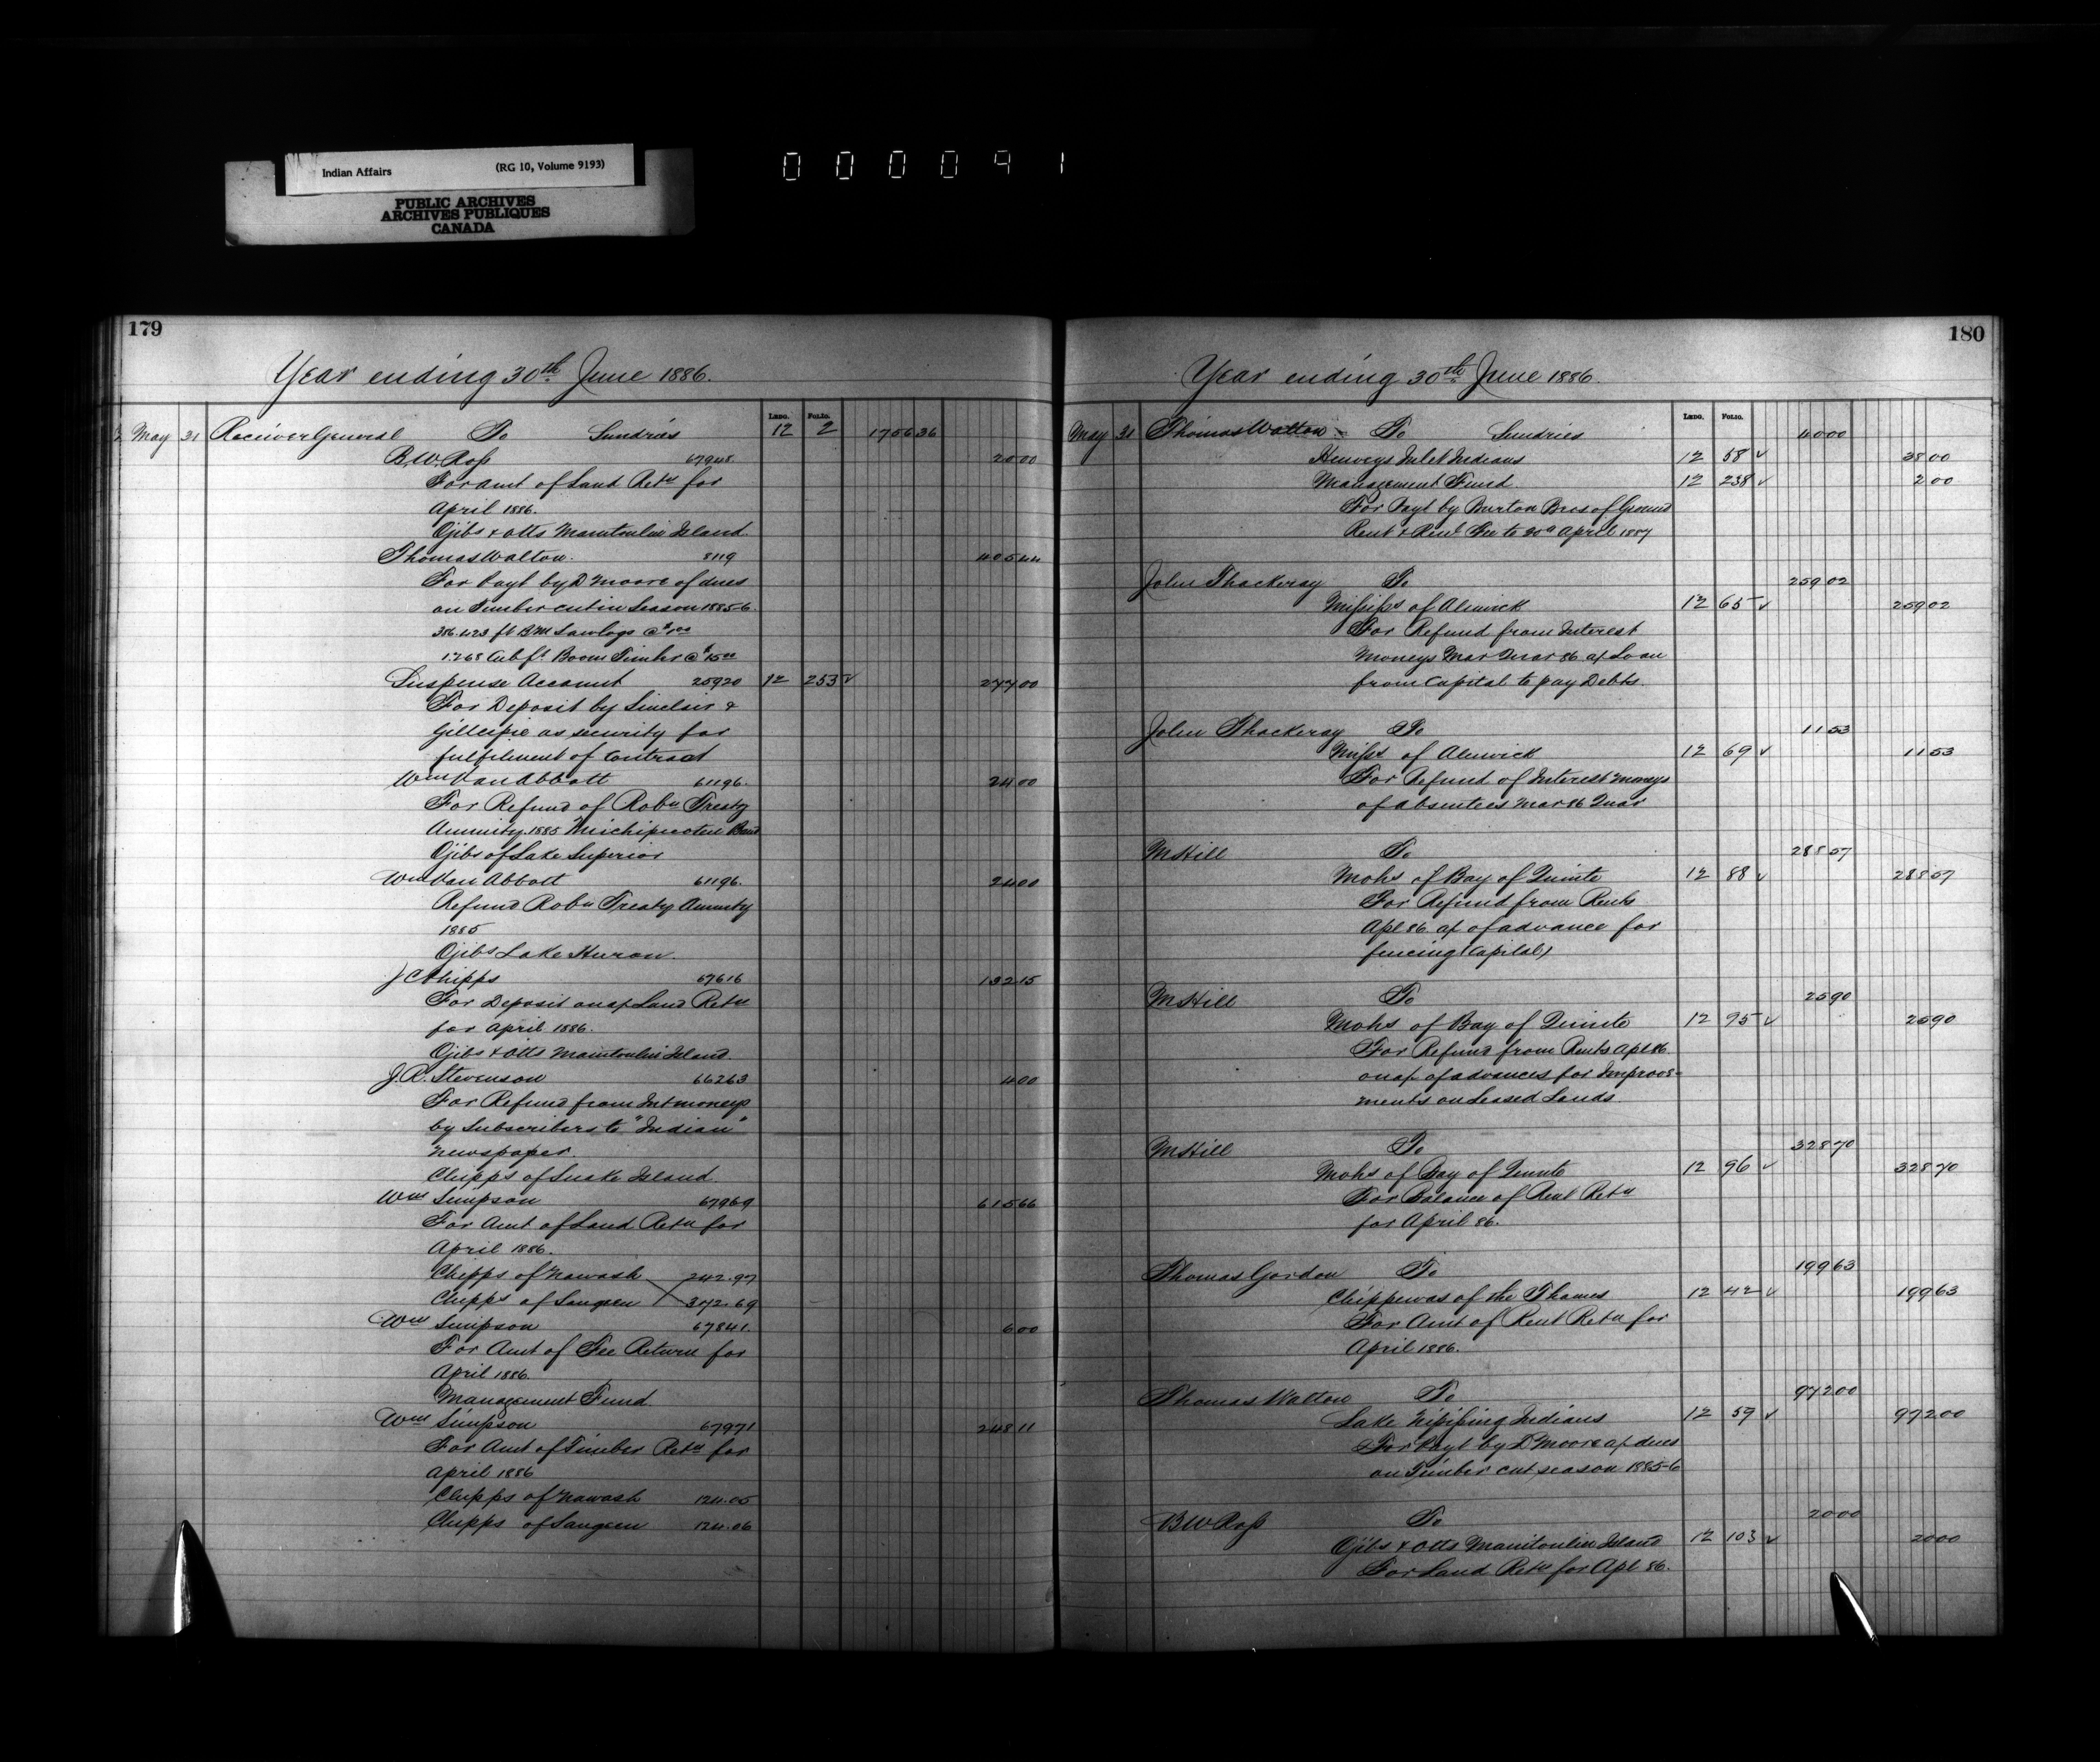 Indian Affairs (RG 10, Volume 9193)
PUBLIC ARCHIVES
ARCHIVES PUBLIQUES
CANADA
000091
179
Year ending 30th June 1886.
LEDG. FOLIO.
May 31 Receiver General To Sundries 12 2 1756 36
B. W. Ross 67948 20 00
For amt of Land Retn for
April 1886.
Ojibs & Otts Manitoulin Island.
Thomas Walton. 8119 405 44
For Payt by D Moore of dues
on Timber cut in Season 1885-6.
386.423 ft B.M Sawlogs @ $1.00
1268 Cub ft. Boom Timber @
Suspense Account 25920 12 253 ✓ 277 00
For Deposit by Sinclair &
Gillespie as security for
fulfilment of Contract
Wm Van Abbott 61196. 24 00
For Refund of Robn Treaty
Annuity 1885 Michipicoten Band
Ojibs of Lake Superior
Wm Van Abbott 61196. 24 00
Refund Robn Treaty Annuity
1885
Ojibs Lake Huron.
J C Phipps 67616 132 15
For Deposit on a/c Land Retn
for April 1886.
Ojibs & Otts Manitoulin Island.
J. R. Stevenson 66263 4 00
For Refund from Int moneys
by Subscribers to "Indian"
newspaper.
Chipps of Snake Island
Wm Simpson 67969 615 66
For Amt of Land Retn for
April 1886.
Chipps of Nawash 242.97
Chipps of Saugeen 372.69
Wm Simpson 67841. 6 00
For Amt of Fee Return for
April 1886.
Management Fund
Wm Simpson 67971 248 11
For Amt of Timber Retn for
April 1886
Chipps of Nawash 124.05
Chipps of Saugeen 124.06
180
Year ending 30th June 1886.
LEDG. FOLIO.
May 31 Thomas Walton To Sundries 40 00
Henveys Inlet Indians 12 58 ✓ 38 00
Management Fund 12 238 ✓ 2 00
For Payt by Burton Bros of Ground
Rent & Renl Fee to 30th April 1887
John Thackeray To 259 02
Mississ of Alnwick 12 65 ✓ 259 02
For Refund from Interest
Moneys Mar Quar 86 a/c Loan
from Capital to pay Debts.
John Thackeray To 11 53
Missss of Alnwick 12 69 ✓ 11 53
For Refund of Interest Moneys
of absentees Mar 86 Quar
M Hill To 288 57
Mohs of Bay of Quinte 12 88 ✓ 288 57
For Refund from Rents
Apl 86 a/c of advance for
fencing (Capital)
M Hill To 25 90
Mohs of Bay of Quinte 12 95 ✓ 25 90
For Refund from Rents Apl 86.
on a/c of advances for Improve-
ments on Leased Lands.
M Hill To 328 70
Mohs of Bay of Quinte 12 96 ✓ 328 70
For Balance of Rent Retn
for April 86.
Thomas Gordon To 199 63
Chippewas of the Thames 12 42 ✓ 199 63
For Amt of Rent Retn for
April 1886.
Thomas Walton To 972 00
Lake Nipissing Indians 12 59 ✓ 972 00
For Payt by D Moore a/c dues
on Timber cut season 1885-6
B W Ross To 20 00
Ojibs & Otts Manitoulin Island 12 103 ✓ 20 00
For Land Retn for Apl 86.